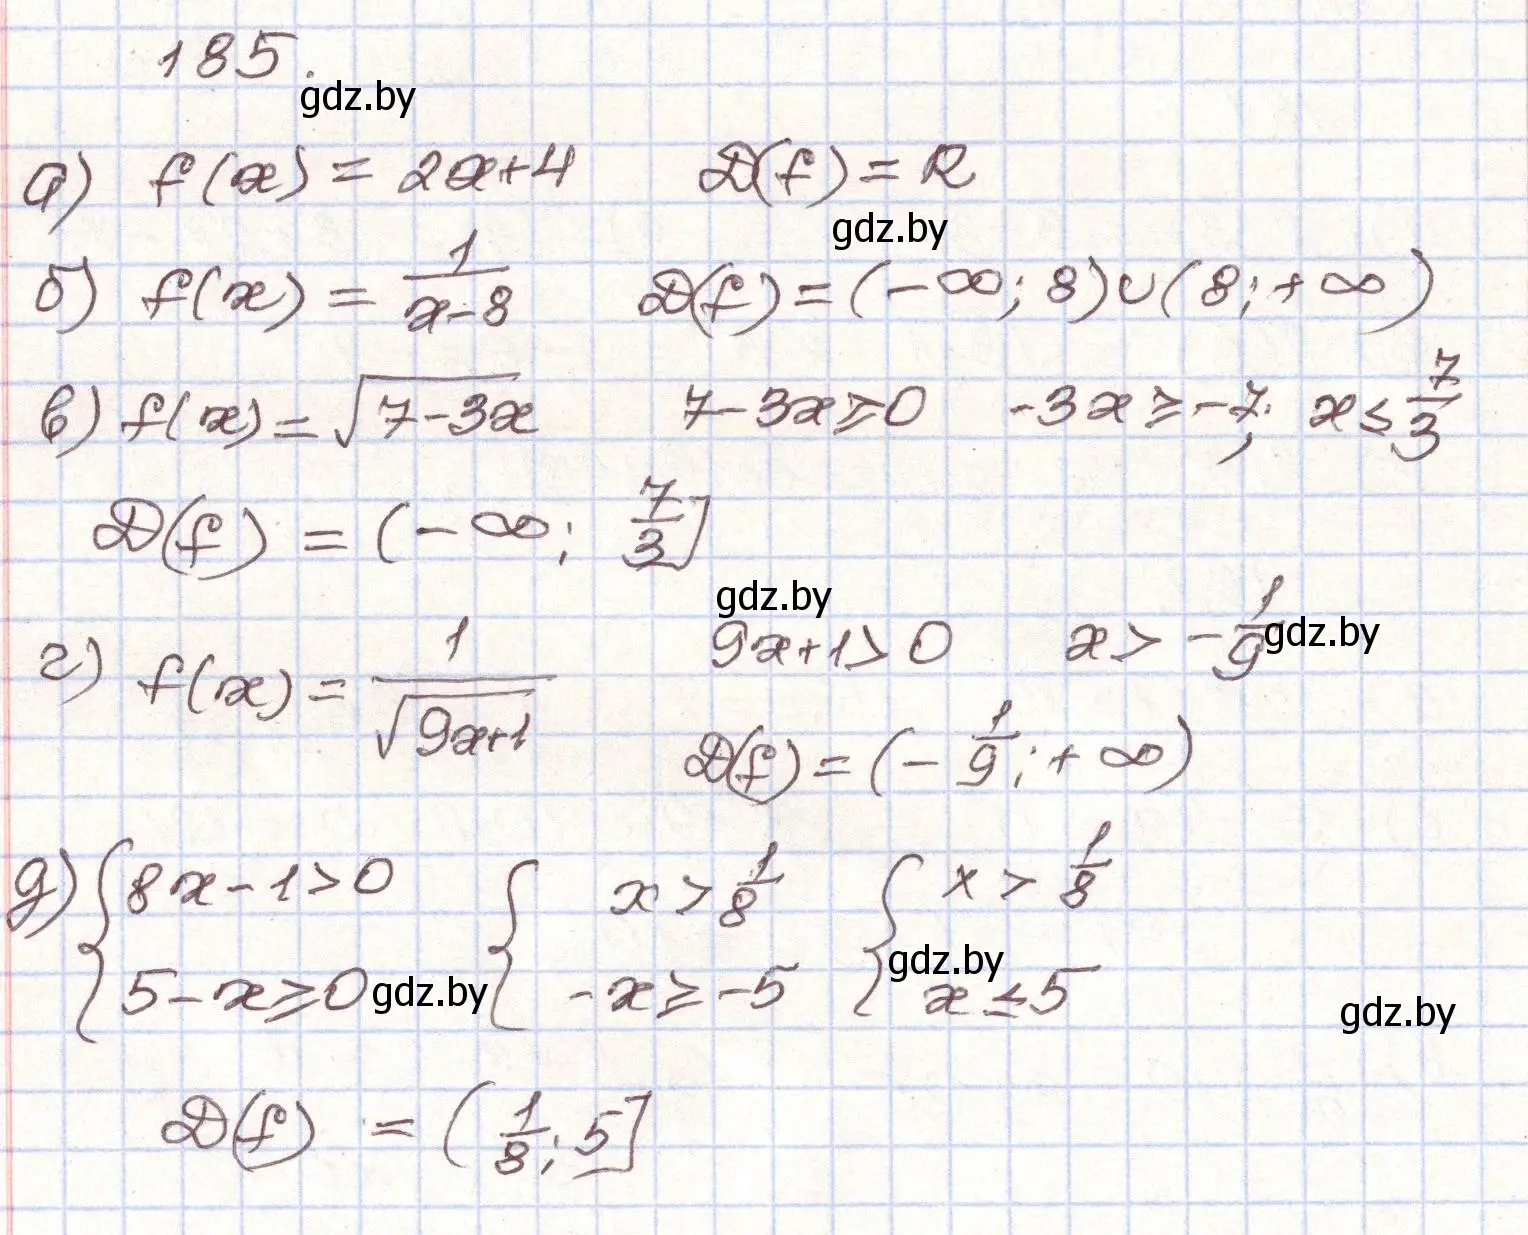 185.
gdz.by
а) f(x) = 2x+4 D(f) = R
gdz.by
б) f(x) = 1/(x-8) D(f) = (-∞; 8)∪(8; +∞)
в) f(x) = √(7-3x) 7-3x≥0 -3x≥-7; x≤7/3
D(f) = (-∞; 7/3]
gdz.by
г) f(x) = 1/√(9x+1) 9x+1>0 x> -1/9 gdz.by
D(f) = (-1/9; +∞)
д) { 8x-1>0 { x>1/8 { x>1/8
5-x≥0 gdz.by -x≥-5 gdz.by x≤5
gdz.by
D(f) = (1/8; 5]